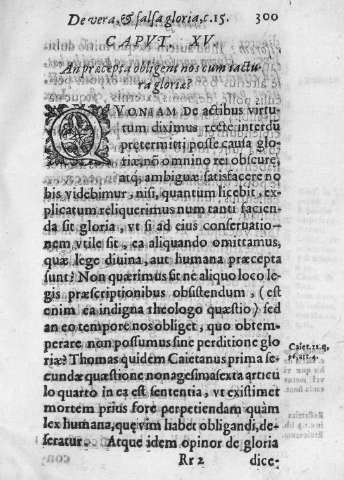 De vera, & falsa gloria, c. 15. 300
CAPUT XV
An præcepta obligent nos cum iactu-
ra gloriæ?
QVONIAM De actibus virtu
tum diximus recte interdū
prętermitti posse causa glo
riæ, nō omnino rei obscuræ,
atq; ambiguæ satisfacere no
bis videbimur, nisi, quantum licebit, ex-
plicatum reliquerimus num tanti facien
da sit gloria, vt si ad eius conseruatio-
nem vtile sit, ea aliquando omittamus,
quæ lege diuina, aut humana præcepta
sunt? Non quærimus sit ne aliquo loco le-
gis præscriptionibus obsistendum, (est
enim ea indigna theologo quæstio) sed
an eo tempore nos obliget, quo obtem-
perare non possumus sine perditione glo
riæ? Thomas quidem Caietanus prima se-
cundæ quæstione nonagesima sexta articu
lo quarto in ea est sententia, vt existimet
mortem prius fore perpetiendam quàm
lex humana, quę vim habet obligandi, de-
seratur. Atque idem opinor de gloria
Rr 2 dice-